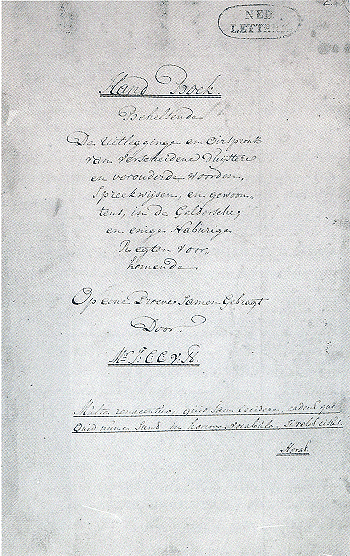 NED
LETTER
Hand Boek
Behelsende
De Uitlegginge en Oirspronk
van verscheidene duystere
en verouderde woorden,
spreekwijsen, en gewoon
tens, in de Geldersche,
en enige Naburige
Regten voor
komende
Op eene Proeve samen Gebragt
Door
Mr J. C. C. v. H.
Multa renascentur, quae jam cecidere, cadentque
Quae nunc sunt in honore vocabula, si volet usus.
Horat.